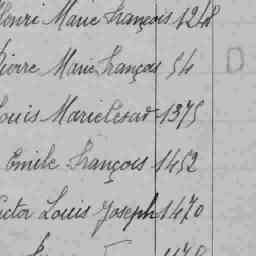 Henri Marie François 1248
Pierre Marie François 54
Louis Marie Cesar 1375
Emile François 1452
Victor Louis Joseph 1470